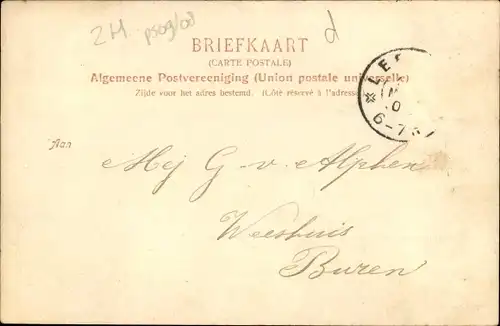 2H
d
BRIEFKAART
(CARTE POSTALE)
Algemeene Postvereeniging (Union postale universelle)
Zijde voor het adres bestemd. (Côté réservé à l'adresse
6-7
Aan
Mej G-v-Alphen
Weeshuis
Buren